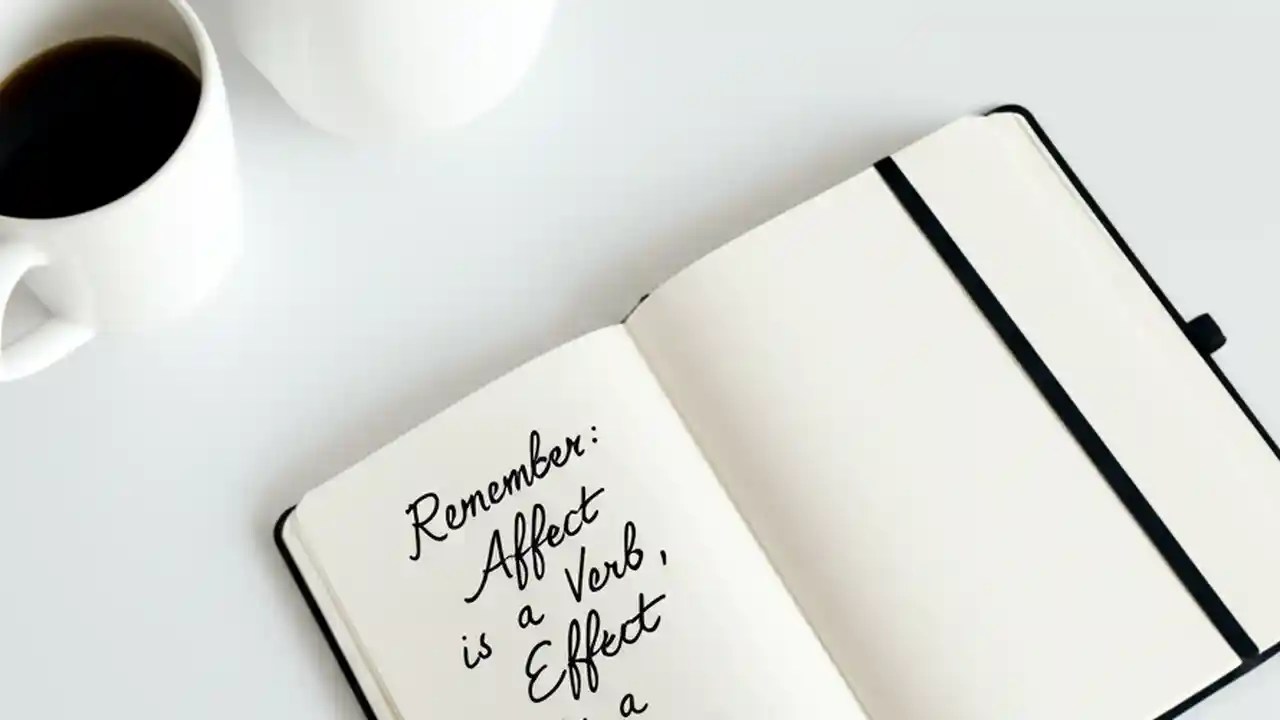 Remember:
Affect
is a Verb,
Effect
a